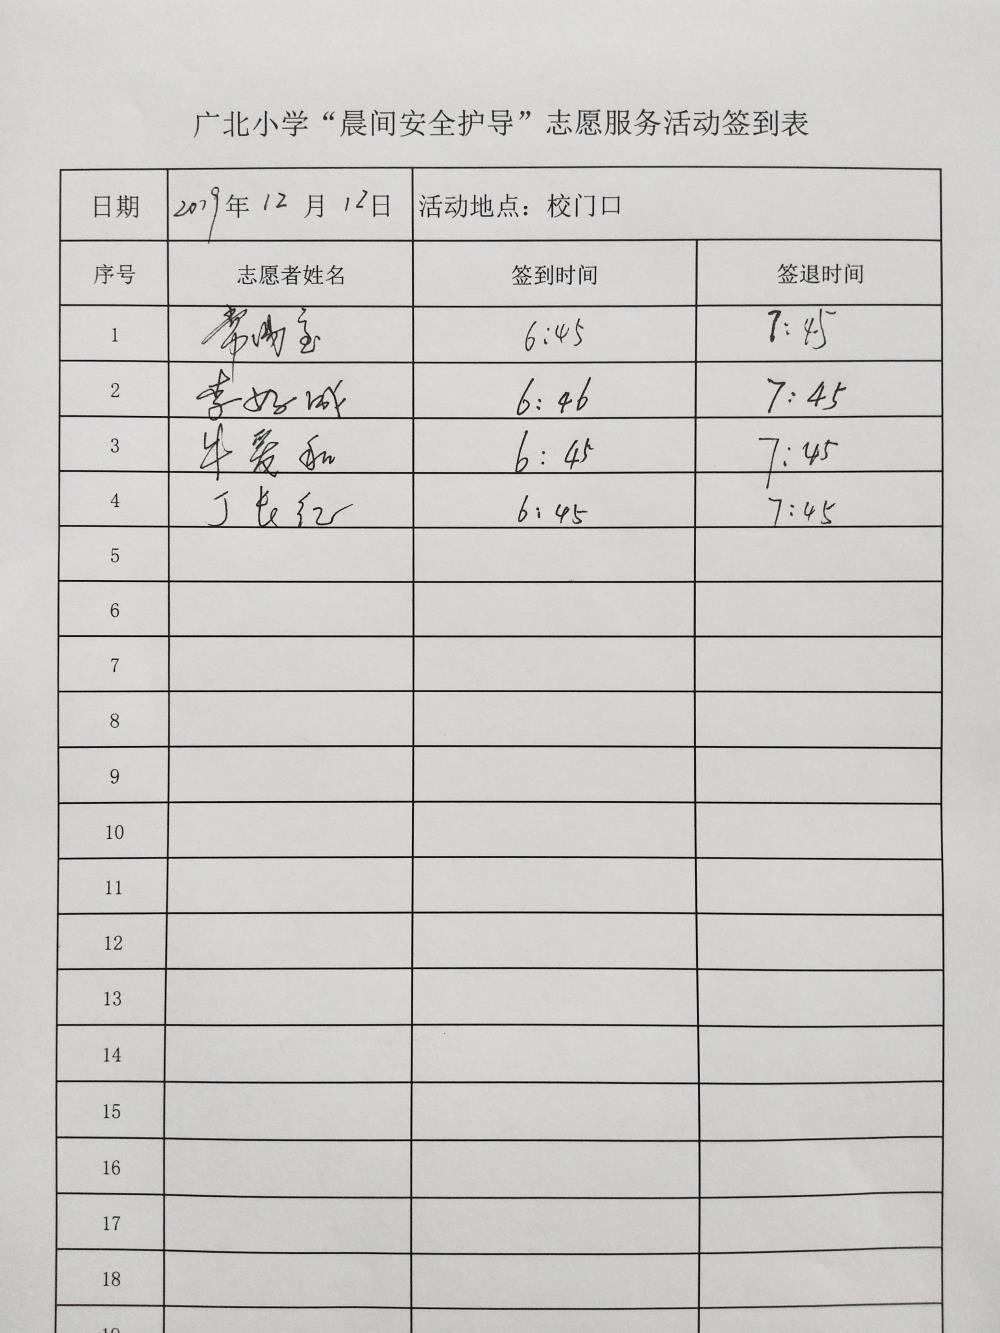 广北小学“晨间安全护导”志愿服务活动签到表
日期 2019年12月12日 活动地点：校门口
序号 志愿者姓名 签到时间 签退时间
1 常 6:45 7:45
2 李好城 6:46 7:45
3 牛爱和 6:45 7:45
4 丁长红 6:45 7:45
5
6
7
8
9
10
11
12
13
14
15
16
17
18